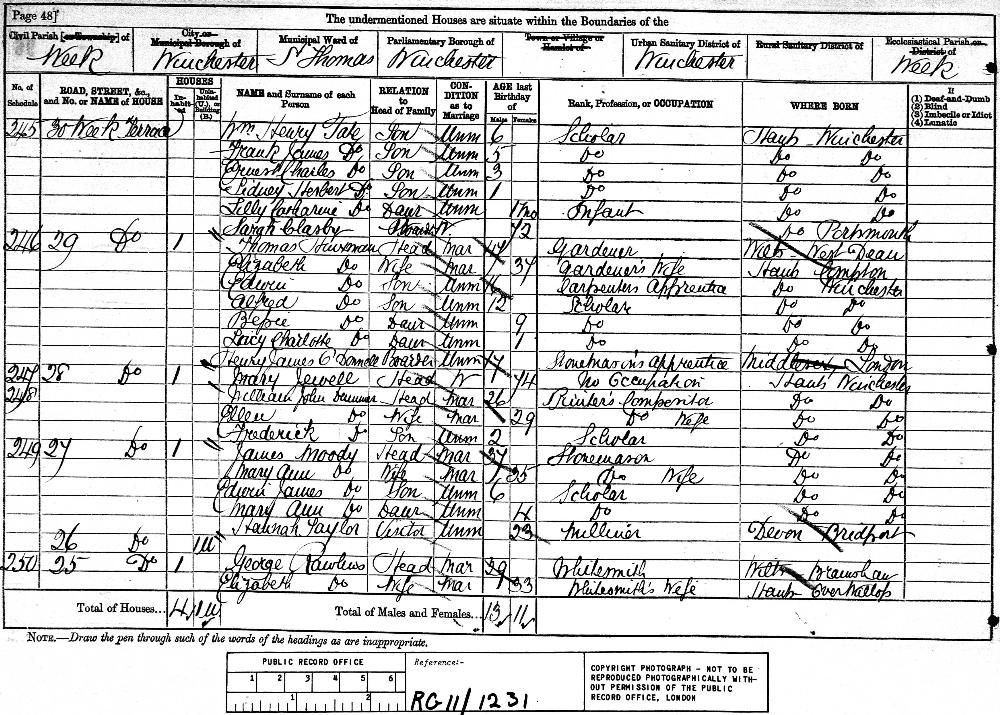 Page 48]
The undermentioned Houses are situate within the Boundaries of the
Civil Parish [or Township] of
City or Municipal Borough of
Municipal Ward of
Parliamentary Borough of
Town or Village or Hamlet of
Urban Sanitary District of
Rural Sanitary District of
Ecclesiastical Parish or District of
Week Winchester St Thomas Winchester Winchester Week
No. of Schedule
ROAD, STREET, &c., and No. or NAME of HOUSE
HOUSES
Inhabited
Uninhabited (U.), or Building (B.)
NAME and Surname of each Person
RELATION to Head of Family
CONDITION as to Marriage
AGE last Birthday of
Males Females
Rank, Profession, or OCCUPATION
WHERE BORN
If
(1) Deaf-and-Dumb
(2) Blind
(3) Imbecile or Idiot
(4) Lunatic
245 30 Week Terrace Wm. Henry Tate Son Unm 6 Scholar Hants Winchester
Frank James Do Son Unm 5 Do Do Do
Ernest Charles Do Son Unm 3 Do Do Do
Sidney Herbert Do Son Unm 1 Do Do Do
Lilly Catharine Do Daur Unm 1 mo Infant Do Do
Sarah Clasby W 72 Do Portsmouth
246 29 Do 1 Thomas Head Mar Gardener Wilts West Dean
Elizabeth Do Wife Mar 37 Gardener's Wife Hants Compton
Edwin Do Son Unm Carpenters Apprentice Do Winchester
Alfred Do Son Unm 12 Scholar Do Do
Bessie Do Daur Unm 9 Do Do Do
Lucy Charlotte Do Daur Unm 7 Do Do Do
Henry James O'Donnell Boarder Unm 17 Stonemason's Apprentice Middlesex London
247 28 Do 1 Mary Jewell Head W 74 No Occupation Hants Winchester
248 William John Head Mar 26 Printer's Compositor Do Do
Ellen Do Wife Mar 29 Do Wife Do Do
Frederick Do Son Unm 2 Scholar Do Do
249 27 Do 1 James Moody Head Mar 37 Stonemason Do Do
Mary Ann Do Wife Mar 35 Do Wife Do Do
Edwin James Do Son Unm 6 Scholar Do Do
Mary Ann Do Daur Unm 4 Do Do Do
Hannah Taylor Visitor Unm 23 Milliner Devon Bridport
26 Do 1U
250 25 Do 1 George Rawlins Head Mar 39 Whitesmith Wilts Bramshaw
Elizabeth Do Wife Mar 33 Whitesmith's Wife Hants Over Wallop
Total of Houses... 4 1U Total of Males and Females... 13 11
NOTE.—Draw the pen through such of the words of the headings as are inappropriate.
PUBLIC RECORD OFFICE
1 2 3 4 5 6
1 2
Reference:-
RG 11/1231
COPYRIGHT PHOTOGRAPH - NOT TO BE
REPRODUCED PHOTOGRAPHICALLY WITH-
OUT PERMISSION OF THE PUBLIC
RECORD OFFICE, LONDON